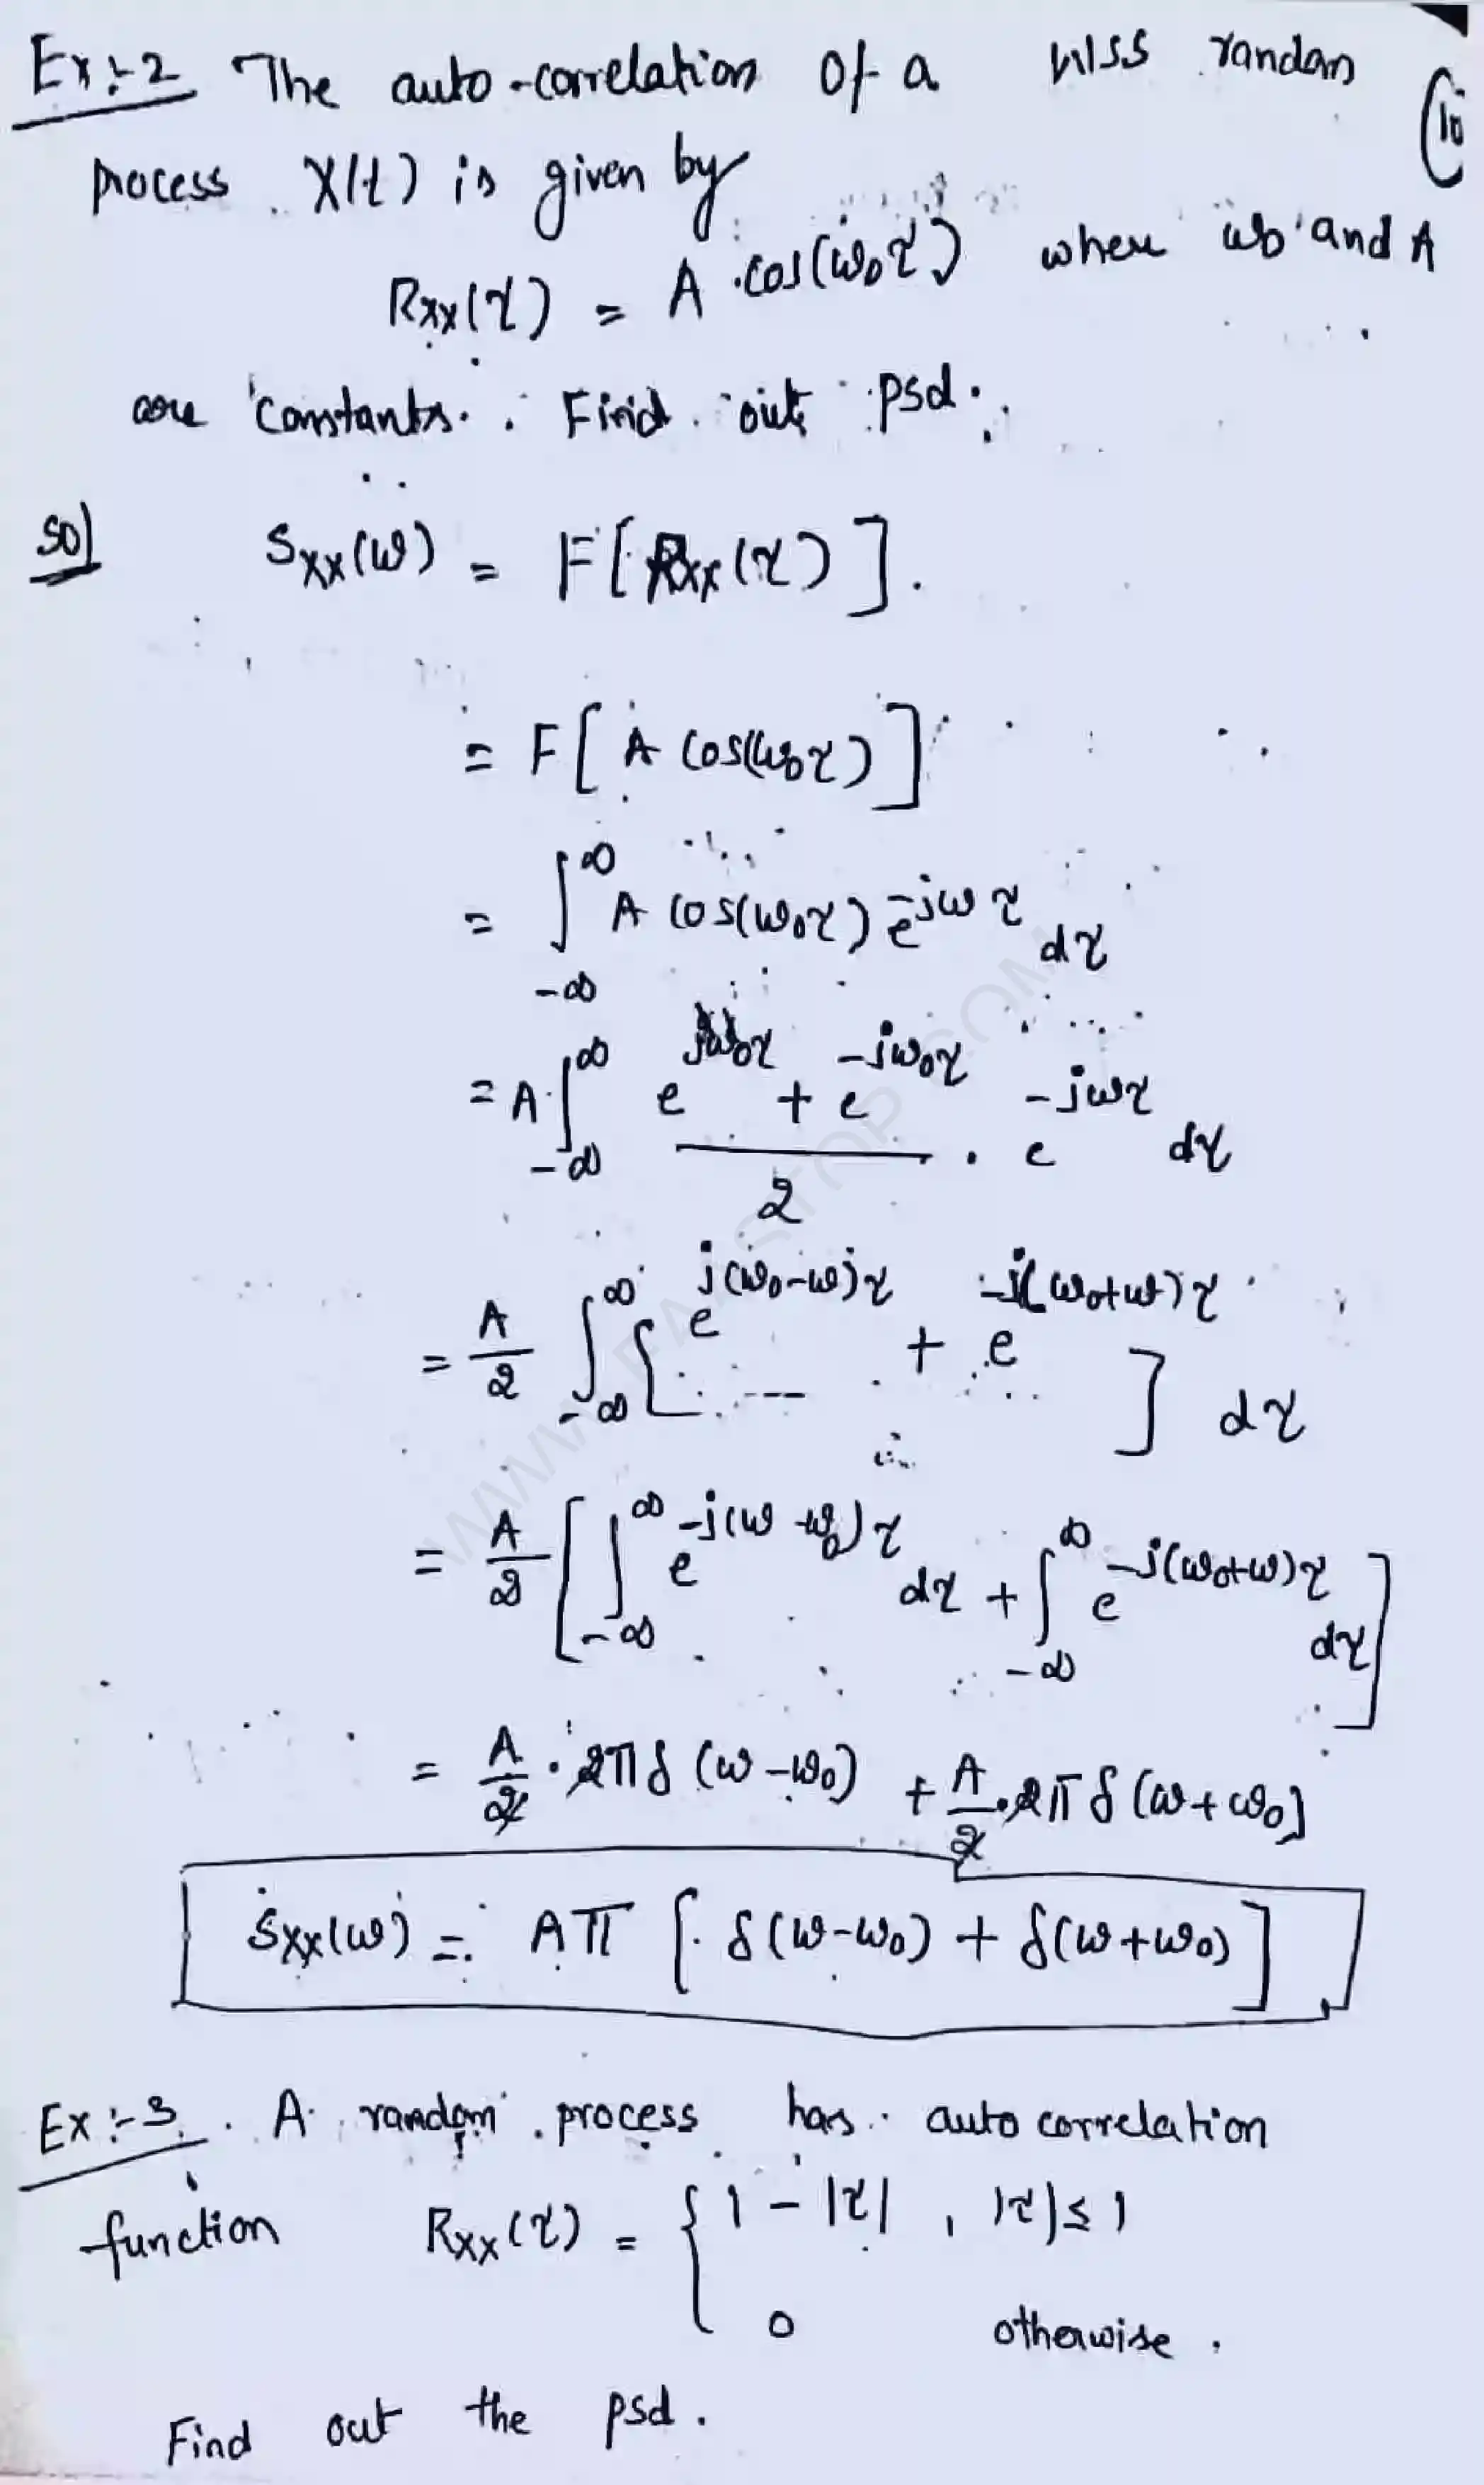 Ex:-2 The auto-correlation of a WSS random
(10
process X(t) is given by
Rxx(τ) = A cos(ω₀τ) where ω₀ and A
are constants. Find out psd.
Sol Sxx(ω) = F[Rxx(τ)].
= F[A cos(ω₀τ)]
= ∫_{-∞}^{∞} A cos(ω₀τ) e^{-jωτ} dτ
= A ∫_{-∞}^{∞} (e^{jω₀τ} + e^{-jω₀τ})/2 . e^{-jωτ} dτ
= A/2 ∫_{-∞}^{∞} [e^{j(ω₀-ω)τ} + e^{-j(ω₀+ω)τ}] dτ
= A/2 [∫_{-∞}^{∞} e^{-j(ω-ω₀)τ} dτ + ∫_{-∞}^{∞} e^{-j(ω₀+ω)τ} dτ]
= A/2 . 2πδ(ω-ω₀) + A/2 . 2πδ(ω+ω₀)
Sxx(ω) = Aπ [δ(ω-ω₀) + δ(ω+ω₀)]
Ex:-3. A random process has auto correlation
function Rxx(τ) = { 1-|τ| , |τ|≤1
0 otherwise.
Find out the psd.